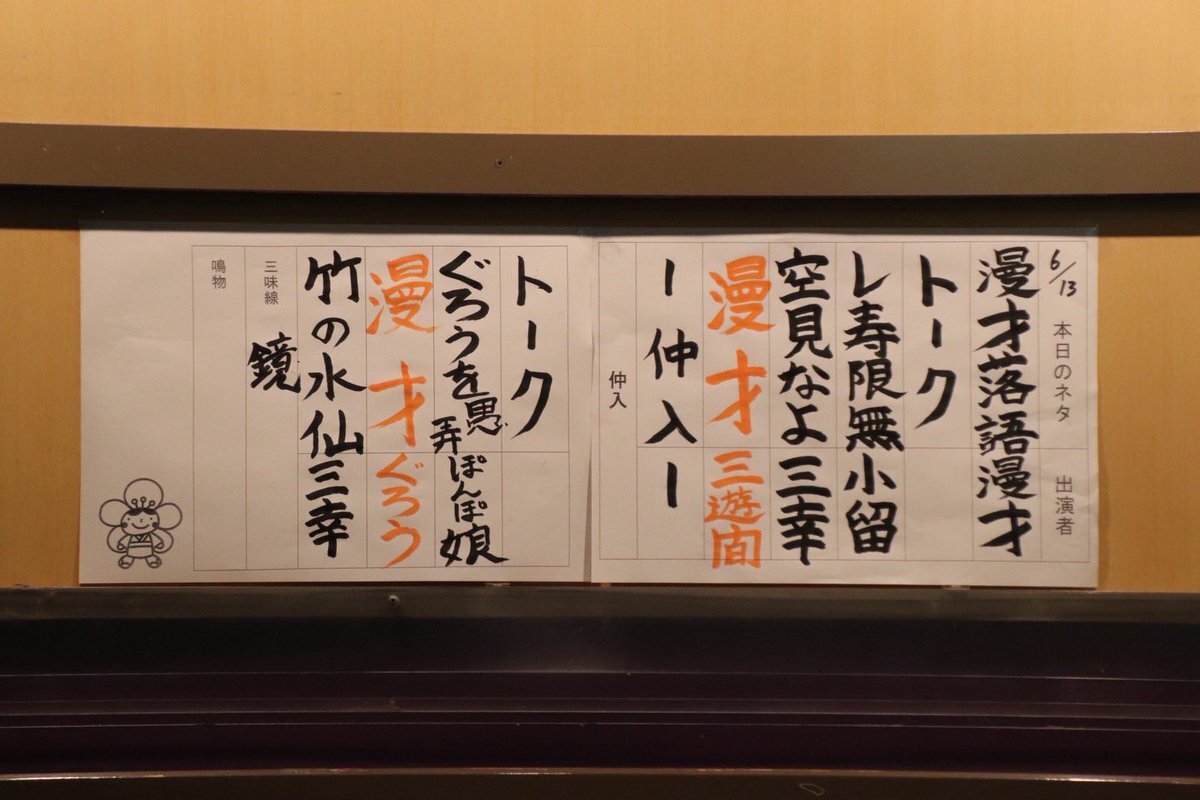 6/13 本日のネタ 出演者
漫才落語漫才
トーク
レ寿限無 小留
空見なよ 三幸
漫才 三遊間
ー仲入ー
仲入
トーク
ぐろうを愚弄 ぽんぽ娘
漫才 ぐろう
竹の水仙 三幸
三味線 鏡
鳴物